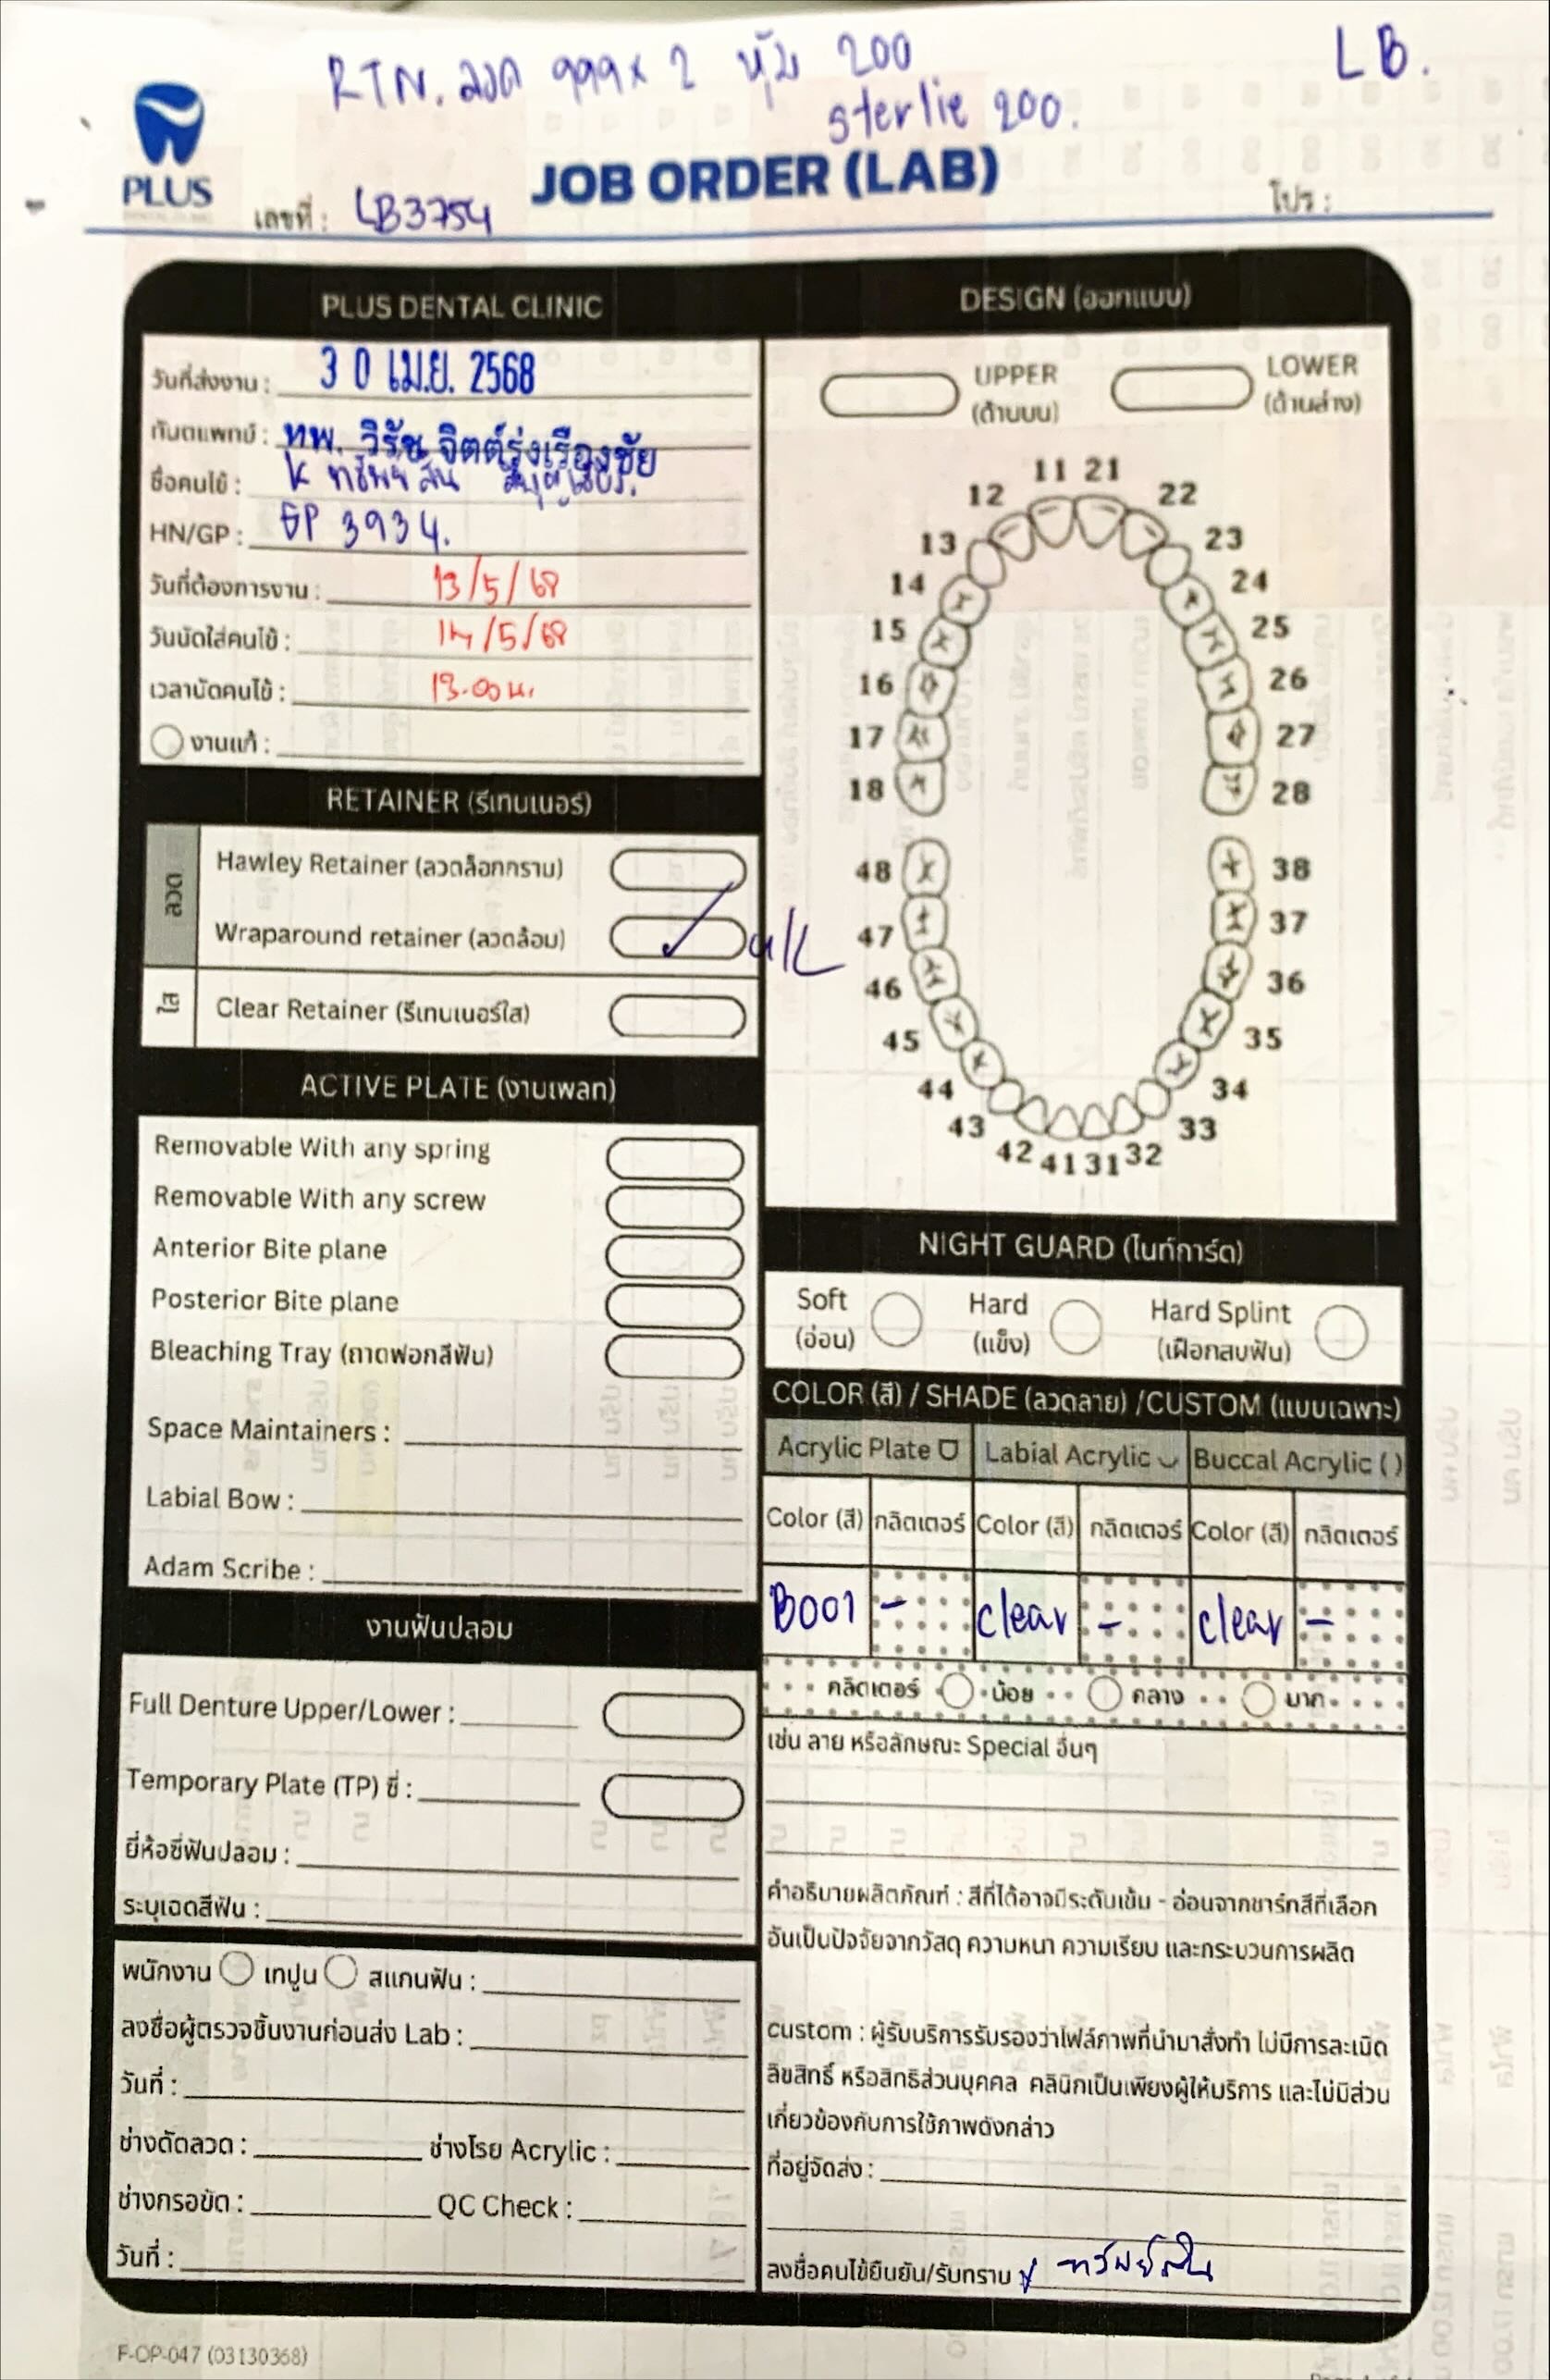 RTN. ลวด 999 x 2 หุ้ม 200
LB.
sterlie 200.
PLUS
JOB ORDER (LAB)
เลขที่ : LB3754
โปร :
PLUS DENTAL CLINIC
วันที่ส่งงาน : 30 เม.ย. 2568
ทันตแพทย์ : ทพ. วิรัช จิตต์รุ่งเรืองชัย
ชื่อคนไข้ : K ทรัพย์สิน
HN/GP : GP 3934.
วันที่ต้องการงาน : 13/5/68
วันนัดใส่คนไข้ : 14/5/68
เวลานัดคนไข้ : 13.00 น.
งานแก้ :
RETAINER (รีเทนเนอร์)
ลวด
Hawley Retainer (ลวดล็อกกราม)
Wraparound retainer (ลวดล้อม) u/L
ใส
Clear Retainer (รีเทนเนอร์ใส)
ACTIVE PLATE (งานเพลท)
Removable With any spring
Removable With any screw
Anterior Bite plane
Posterior Bite plane
Bleaching Tray (ถาดฟอกสีฟัน)
Space Maintainers :
Labial Bow :
Adam Scribe :
งานฟันปลอม
Full Denture Upper/Lower :
Temporary Plate (TP) ซี่ :
ยี่ห้อซี่ฟันปลอม :
ระบุเฉดสีฟัน :
พนักงาน เทปูน สแกนฟัน :
ลงชื่อผู้ตรวจชิ้นงานก่อนส่ง Lab :
วันที่ :
ช่างดัดลวด : ช่างโรย Acrylic :
ช่างกรอขัด : QC Check :
วันที่ :
DESIGN (ออกแบบ)
UPPER
(ด้านบน)
LOWER
(ด้านล่าง)
11 21
12 22
13 23
14 24
15 25
16 26
17 27
18 28
48 38
47 37
46 36
45 35
44 34
43 33
42 41 31 32
NIGHT GUARD (ไนท์การ์ด)
Soft Hard Hard Splint
(อ่อน) (แข็ง) (เฝือกสบฟัน)
COLOR (สี) / SHADE (ลวดลาย) /CUSTOM (แบบเฉพาะ)
Acrylic Plate Labial Acrylic Buccal Acrylic ( )
Color (สี) กลิตเตอร์ Color (สี) กลิตเตอร์ Color (สี) กลิตเตอร์
B001 - clear - clear -
กลิตเตอร์ น้อย กลาง มาก
เช่น ลาย หรือลักษณะ Special อื่นๆ
คำอธิบายผลิตภัณฑ์ : สีที่ได้อาจมีระดับเข้ม - อ่อนจากชาร์กสีที่เลือก
อันเป็นปัจจัยจากวัสดุ ความหนา ความเรียบ และกระบวนการผลิต
custom : ผู้รับบริการรับรองว่าไฟล์ภาพที่นำมาสั่งทำ ไม่มีการละเมิด
ลิขสิทธิ์ หรือสิทธิส่วนบุคคล คลินิกเป็นเพียงผู้ให้บริการ และไม่มีส่วน
เกี่ยวข้องกับการใช้ภาพดังกล่าว
ที่อยู่จัดส่ง :
ลงชื่อคนไข้ยืนยัน/รับทราบ ทรัพย์สิน
F-OP-047 (03130368)